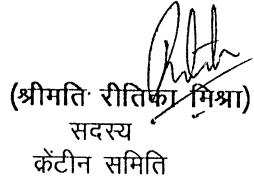 (श्रीमति रीतिका मिश्रा)
सदस्य
केंटीन समिति